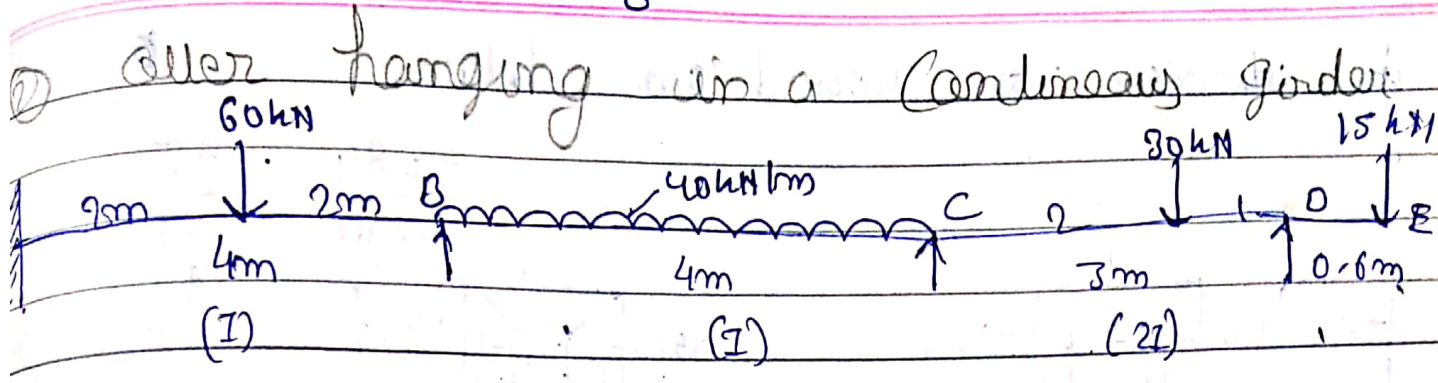 ② over hanging in a Contineous girder
60kN 30kN 15kN
2m 2m B 40kN/m C 2 1 D E
4m 4m 3m 0.6m
(I) (I) (2I)